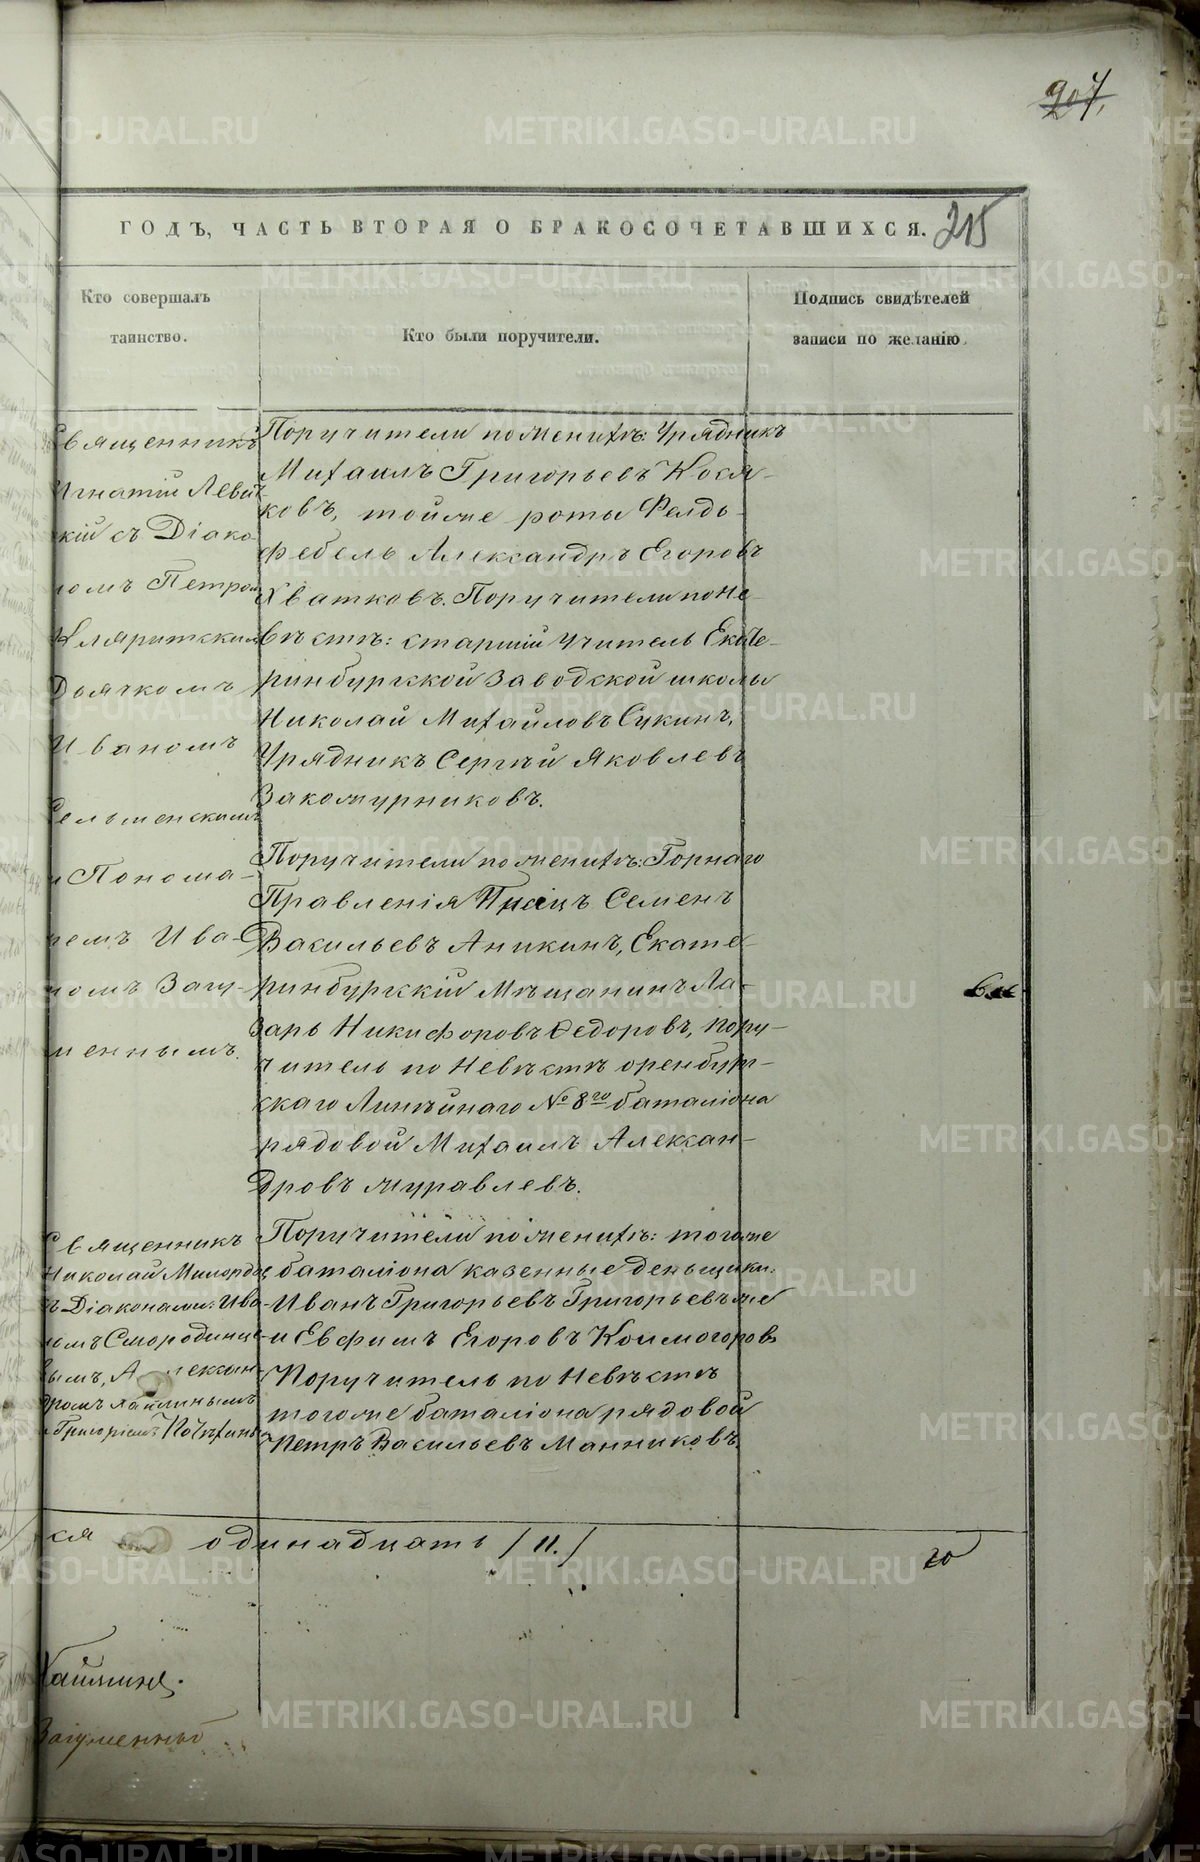 207,
ГОДЪ, ЧАСТЬ ВТОРАЯ О БРАКОСОЧЕТАВШИХСЯ.
215
Кто совершалъ
таинство.
Кто были поручители.
Подпись свидѣтелей
записи по желанію.
Священникъ
Игнатій Левиц-
кій съ Діако-
номъ Петромъ
Дьячкомъ
Иваномъ
и Понома-
ремъ Ива-
номъ Загу-
меннымъ.
Поручители по женихѣ: Урядникъ
Михаилъ Григорьевъ Кося-
ковъ, тойже роты Фелдь-
фебель Александръ Егоровъ
Хватковъ. Поручители по Не-
вѣстѣ: старшій Учитель Екате-
ринбургской Заводской школы
Николай Михайловъ Сукинъ,
Урядникъ Сергѣй Яковлевъ
Закожурниковъ.
Поручители по женихѣ: Горнаго
Правленія Писецъ Семенъ
Васильевъ Аникинъ, Екате-
ринбургскій Мѣщанинъ Ла-
зарь Никифоровъ Федоровъ, пору-
читель по Невѣстѣ оренбург-
скаго Линѣйнаго № 8го баталіона
рядовой Михаилъ Алексан-
дровъ Журавлевъ.
Священникъ
Николай
съ Діаконами: Ива-
номъ Смородинце-
вымъ, Алексан-
дромъ
Григоріемъ
Поручители по женихѣ: тогоже
баталіона казенные деньщики:
Иванъ Григорьевъ Григорьевъ же
и Евфимъ Егоровъ Колмогоровъ
Поручитель по Невѣстѣ
тогоже баталіона рядовой
Петръ Васильевъ Манниковъ.
ся одинадцать /11./
20
Загуменный
METRIKI.GASO-URAL.RU